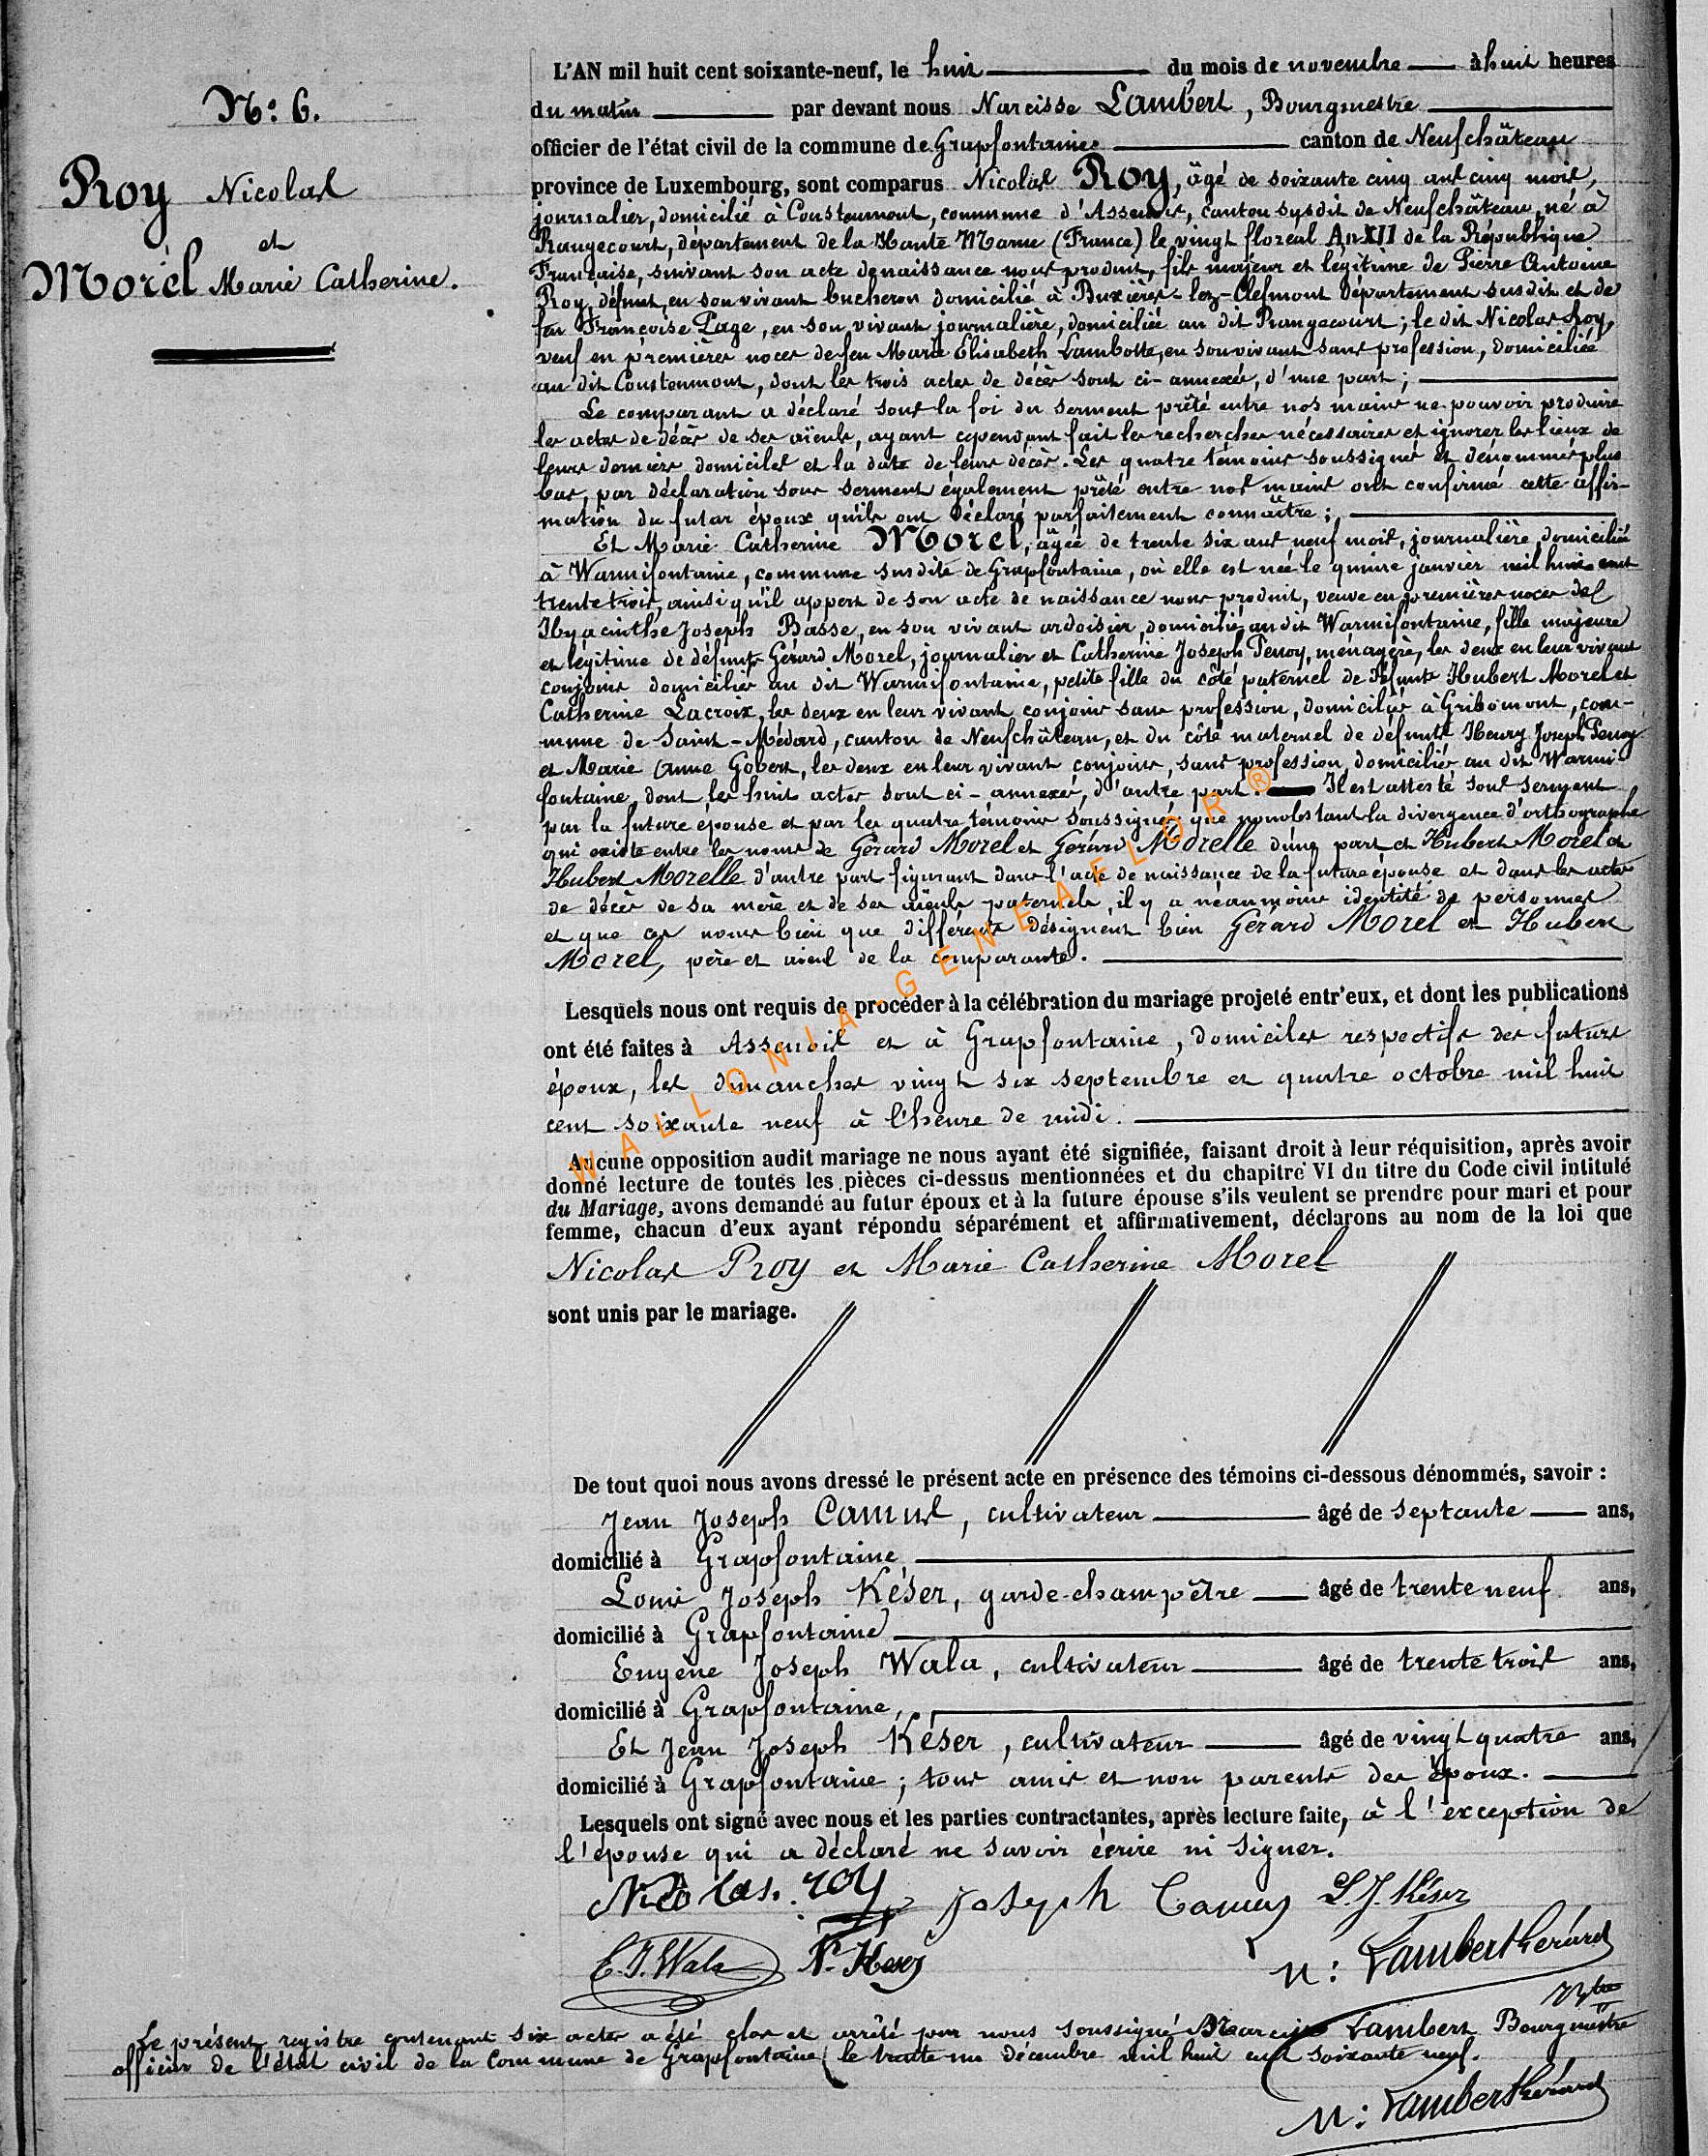 N°: 6.
Roy Nicolas
et
Morel Marie Catherine.
L'AN mil huit cent soixante-neuf, le huit du mois de novembre à huit heures
du matin par devant nous Narcisse Lambert, Bourgmestre
officier de l'état civil de la commune de Grapfontaine canton de Neufchâteau
province de Luxembourg, sont comparus Nicolas Roy, âgé de soixante cinq ans cinq mois,
journalier, domicilié à Coustoumont, commune d'Assenois, canton susdit de Neufchâteau, né à
Rangecourt, département de la Haute Marne (France) le vingt floréal An XII de la République
Française, suivant son acte de naissance nous produit, fils majeur et légitime de Pierre Antoine
Roy, défunt, en son vivant bucheron domicilié à Buxières-lez-Clefmont département susdit et de
feu Françoise Page, en son vivant journalière, domiciliée au dit Rangecourt; le dit Nicolas Roy,
veuf en premières noces de feu Marie Elisabeth Lambotte, en son vivant sans profession, domiciliée
au dit Coustoumont, dont les trois actes de décès sont ci-annexés, d'une part;
Le comparant a déclaré sous la foi du serment prêté entre nos mains ne pouvoir produire
les actes de décès de ses aïeuls, ayant cependant fait les recherches nécessaires et ignorer les lieux de
leurs derniers domiciles et la date de leurs décès. Les quatre témoins soussignés et dénommés plus
bas, par déclaration sous serment également prêté entre nos mains ont confirmé cette affir-
mation du futur époux qu'ils ont déclaré parfaitement connaître;
Et Marie Catherine Morel, âgée de trente six ans neuf mois, journalière, domiciliée
à Warmifontaine, commune susdite de Grapfontaine, où elle est née le quinze janvier mil huit cent
trente trois, ainsi qu'il appert de son acte de naissance nous produit, veuve en premières noces de
Hyacinthe Joseph Basse, en son vivant ardoisier, domicilié au dit Warmifontaine, fille majeure
et légitime de défunts Gérard Morel, journalier et Catherine Joseph Penoy, ménagère, les deux en leur vivant
conjoins domiciliés au dit Warmifontaine, petite fille du côté paternel de défunts Hubert Morel et
Catherine Lacroix, les deux en leur vivant conjoins sans profession, domiciliés à Gribomont, com-
mune de Saint-Médard, canton de Neufchâteau, et du côté maternel de défunts Henry Joseph Penoy
et Marie Anne Gobert, les deux en leur vivant conjoins, sans profession, domiciliés au dit Warmi-
fontaine, dont les huit actes sont ci-annexés, d'autre part. Il est attesté sous serment
par la future épouse et par les quatre témoins soussignés que nonobstant la divergence d'orthographe
qui existe entre les noms de Gérard Morel et Gérard Morelle d'une part et Hubert Morel et
Hubert Morelle d'autre part figurant dans l'acte de naissance de la future épouse et dans les actes
de décès de sa mère et de ses aïeuls paternels, il y a néanmoins identité de personnes
et que ces noms bien que différents désignent bien Gérard Morel et Hubert
Morel, père et aïeul de la comparante.
WALLONIA-GENEAFLOR®
Lesquels nous ont requis de procéder à la célébration du mariage projeté entr'eux, et dont les publications
ont été faites à Assenois et à Grapfontaine, domiciles respectifs des futurs
époux, les dimanches vingt six septembre et quatre octobre mil huit
cent soixante neuf à l'heure de midi.
Aucune opposition audit mariage ne nous ayant été signifiée, faisant droit à leur réquisition, après avoir
donné lecture de toutes les pièces ci-dessus mentionnées et du chapitre VI du titre du Code civil intitulé
du Mariage, avons demandé au futur époux et à la future épouse s'ils veulent se prendre pour mari et pour
femme, chacun d'eux ayant répondu séparément et affirmativement, déclarons au nom de la loi que
Nicolas Roy et Marie Catherine Morel
sont unis par le mariage.
De tout quoi nous avons dressé le présent acte en présence des témoins ci-dessous dénommés, savoir :
Jean Joseph Camus, cultivateur âgé de septante ans,
domicilié à Grapfontaine
Louis Joseph Késer, garde-champêtre âgé de trente neuf ans,
domicilié à Grapfontaine
Eugène Joseph Wala, cultivateur âgé de trente trois ans,
domicilié à Grapfontaine,
Et Jean Joseph Késer, cultivateur âgé de vingt quatre ans,
domicilié à Grapfontaine; tous amis et non parents des époux.
Lesquels ont signé avec nous et les parties contractantes, après lecture faite, à l'exception de
l'épouse qui a déclaré ne savoir écrire ni signer.
Nicolas. roy Joseph Camus L.J. Késer
E.J. Wala N: Lambert Gérard
Le présent registre contenant six actes a été clos et arrêté par nous soussigné Narcisse Lambert Bourgmestre
officier de l'état civil de la Commune de Grapfontaine le trente un décembre mil huit cent soixante neuf.
N: Lambert Gérard